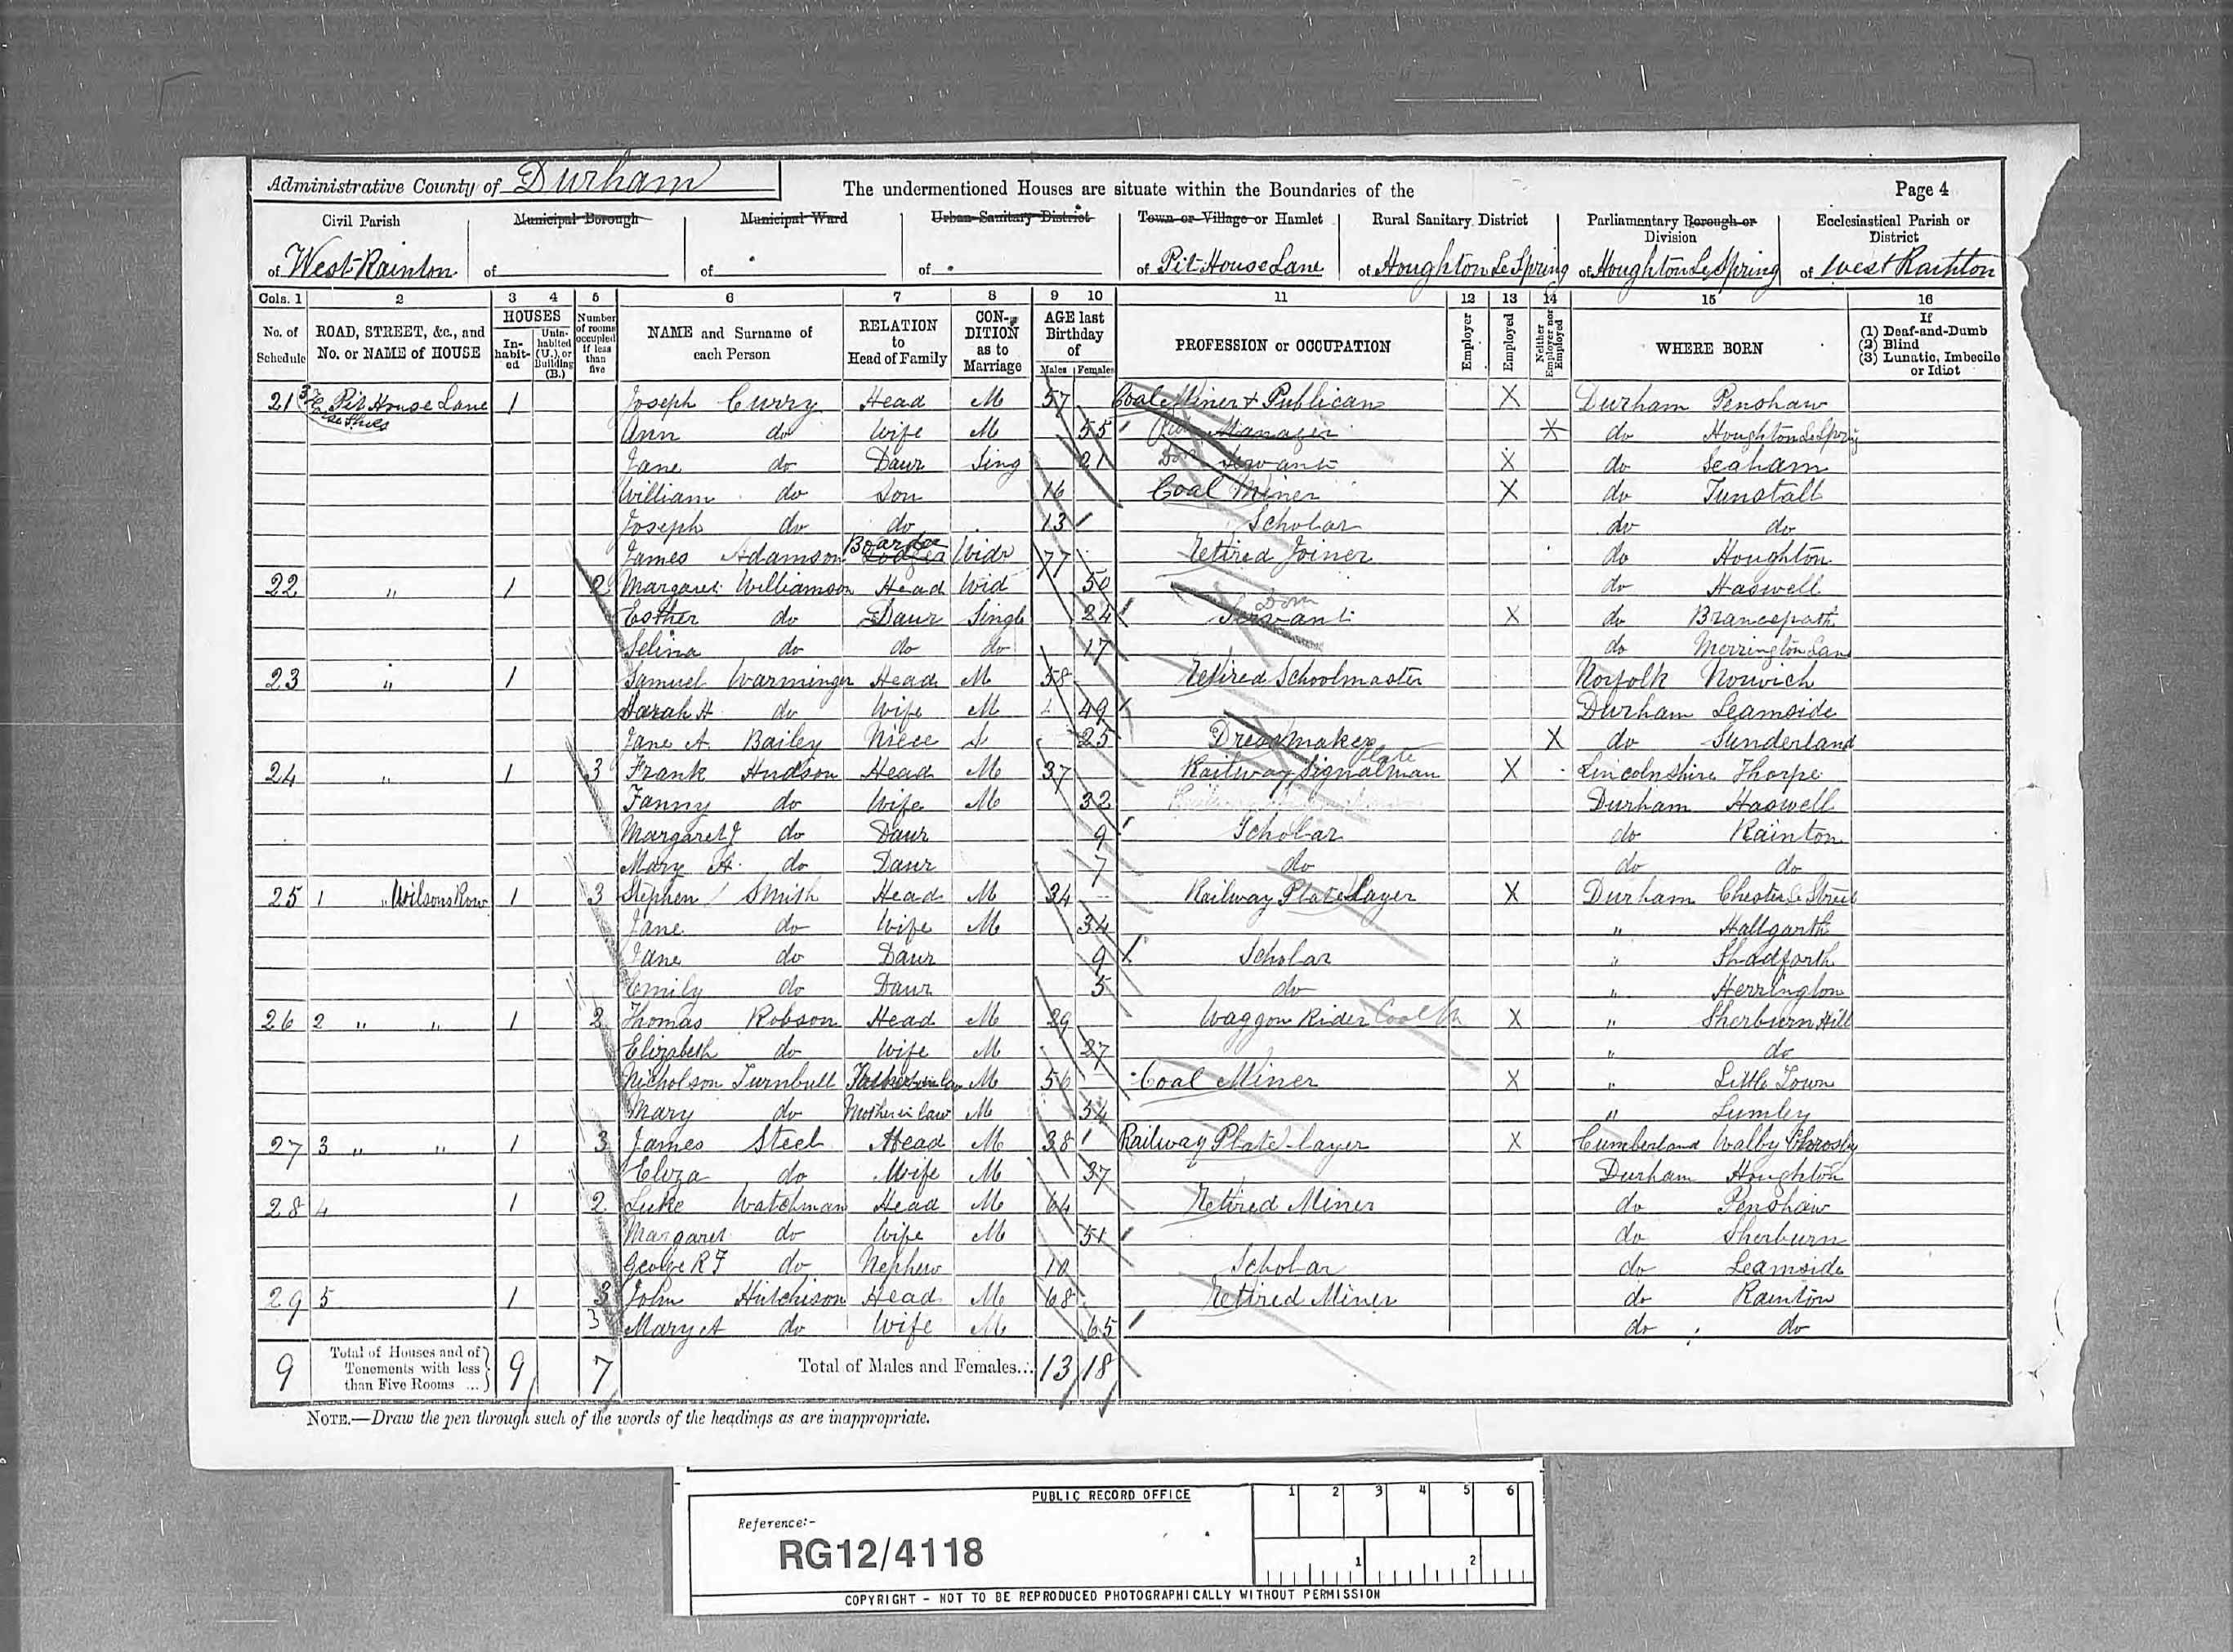 Administrative County of Durham The undermentioned Houses are situate within the Boundaries of the Page 4
Civil Parish Municipal Borough Municipal Ward Urban Sanitary District Town or Village or Hamlet Rural Sanitary District Parliamentary Borough or Division Ecclesiastical Parish or District
of West Rainton of of of of Pit House Lane of Houghton Le Spring of Houghton Le Spring of West Rainton
Cols. 1 2 3 4 5 6 7 8 9 10 11 12 13 14 15 16
No. of Schedule ROAD, STREET, &c., and No. or NAME of HOUSE HOUSES In-habit-ed Unin-habited (U.), or Building (B.) Number of rooms occupied if less than five NAME and Surname of each Person RELATION to Head of Family CON-DITION as to Marriage AGE last Birthday of Males Females PROFESSION or OCCUPATION Employer Employed Neither Employer nor Employed WHERE BORN If (1) Deaf-and-Dumb (2) Blind (3) Lunatic, Imbecile or Idiot
21 Pit House Lane 1 Joseph Curry Head M 57 Coal Miner & Publican X Durham Penshaw
Ann do Wife M 55 Manager X do Houghton Le Spring
Jane do Daur Sing 21 Dom Servant X do Seaham
William do Son 16 Coal Miner X do Tunstall
Joseph do do 13 Scholar do do
James Adamson Boarder Lodger Widr 77 Retired Joiner do Houghton
22 " 1 2 Margaret Williamson Head Wid 50 do Haswell
Esther do Daur Single 24 Dom Servant X do Brancepath
Selina do do do 17 do Merrington Lane
23 " 1 Samuel Warminger Head M 58 Retired Schoolmaster Norfolk Norwich
Sarah H do Wife M 49 Durham Leamside
Jane A Bailey Niece S 25 Dressmaker X do Sunderland
24 " 1 3 Frank Hudson Head M 37 Railway Signalman Plate X Lincolnshire Thorpe
Fanny do Wife M 32 Durham Haswell
Margaret J do Daur 9 Scholar do Rainton
Mary A do Daur 7 do do do
25 1 " Wilsons Row 1 3 Stephen Smith Head M 34 Railway Plate Layer X Durham Chester Le Street
Jane do Wife M 34 " Hallgarth
Jane do Daur 9 Scholar " Shadforth
Emily do Daur 5 do " Herrington
26 2 " " 1 2 Thomas Robson Head M 29 Waggon Rider Coal M X " Sherburn Hill
Elizabeth do Wife M 27 " do
Nicholson Turnbull Father in law M 56 Coal Miner X " Little Town
Mary do Mother in law M 54 " Lumley
27 3 " " 1 3 James Steel Head M 38 Railway Plate-layer X Cumberland Walby Chrosby
Eliza do Wife M 37 Durham Houghton
28 4 1 2 Luke Watchman Head M 64 Retired Miner do Penshaw
Margaret do Wife M 51 do Sherburn
George R F do Nephew 10 Scholar do Leamside
29 5 1 3 John Hutchison Head M 68 Retired Miner do Rainton
3 Mary A do Wife M 65 do do
9 Total of Houses and of Tenements with less than Five Rooms ... 9 7 Total of Males and Females... 13 18
NOTE.—Draw the pen through such of the words of the headings as are inappropriate.
PUBLIC RECORD OFFICE 1 2 3 4 5 6
Reference:-
RG12/4118 1 2
COPYRIGHT - NOT TO BE REPRODUCED PHOTOGRAPHICALLY WITHOUT PERMISSION